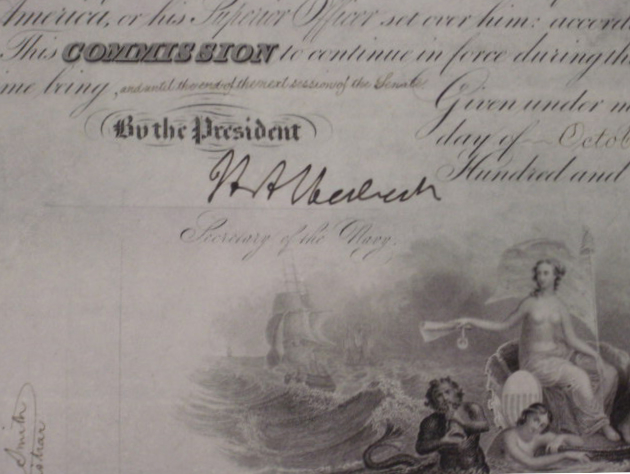 America, or his Superior Officer set over him: accord
This COMMISSION to continue in force during th
me being, and until the end of the next session of the Senate.
Given under m
By the President
day of October
Hundred and
Secretary of the Navy.
Smith